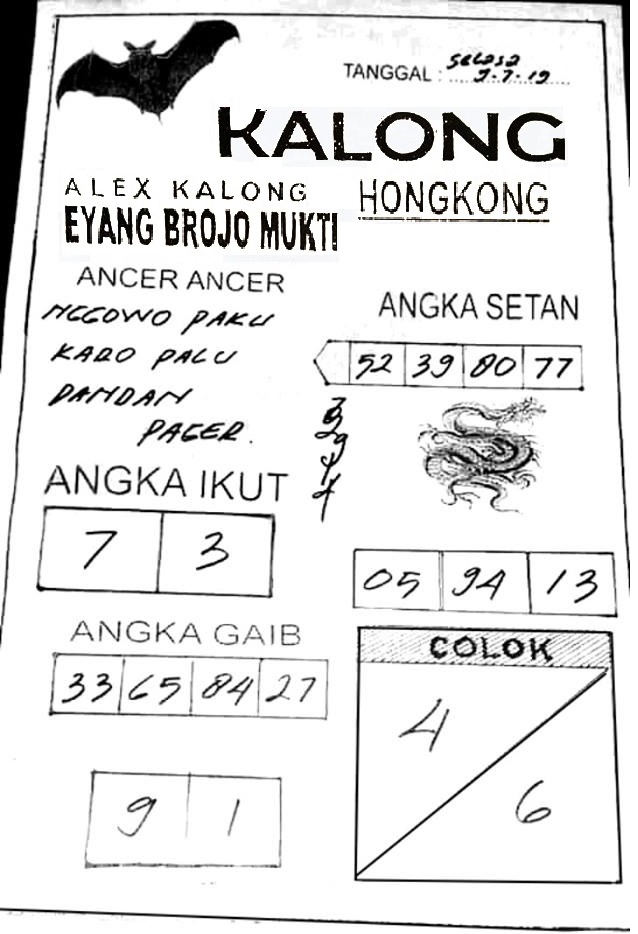 TANGGAL : Selasa 9-7-19
KALONG
ALEX KALONG
HONGKONG
EYANG BROJO MUKTI
ANCER ANCER
NGGOWO PAKU
KARO PALU
DANDAN
PAGER.
ANGKA SETAN
52 39 80 77
ANGKA IKUT
7 3
05 94 13
ANGKA GAIB
33 65 84 27
COLOK
4
6
9 1